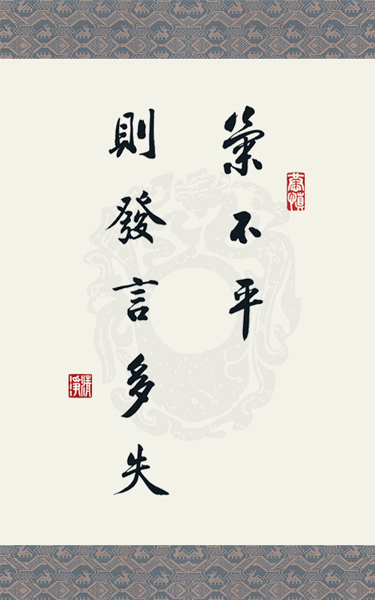 氣不平
則發言多失
清淨